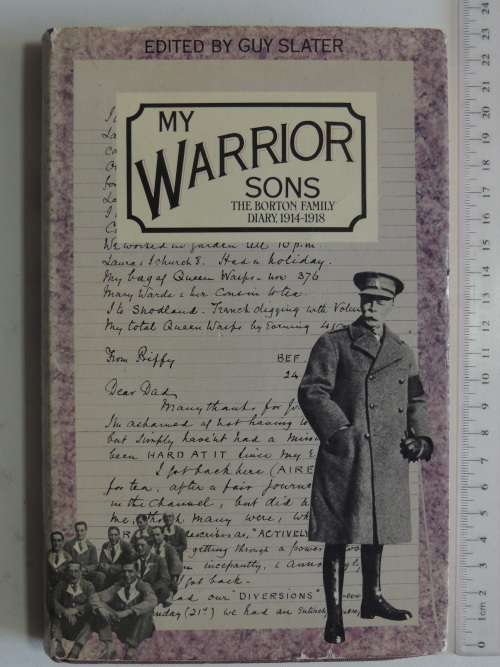 EDITED BY GUY SLATER
MY
WARRIOR
SONS
THE BORTON FAMILY
DIARY, 1914-1918
We worked in garden till 10 p.m.
Laura & I church 8. Had a holiday.
My bag of Queen Wasps - now 376
Mary Warde & her Cousin to tea.
I to Snodland. Trench digging with Volun
My total Queen Wasps by Evening 4
From Biffy BEF
24
Dear Dad,
Many thanks for
I'm ashamed of not having
but simply haven't had a
been HARD AT IT since my
I got back here (AIRE
for tea, after a fair journe
in the Channel, but did
me, though many were,
described as, "ACTIVELY
getting through a
incessantly, &
got back -
had our "DIVERSIONS"
day (21st) we had an Entire
24
23
22
21
20
19
18
17
16
15
14
13
12
11
10
9
8
7
6
5
4
3
2
1cm
0